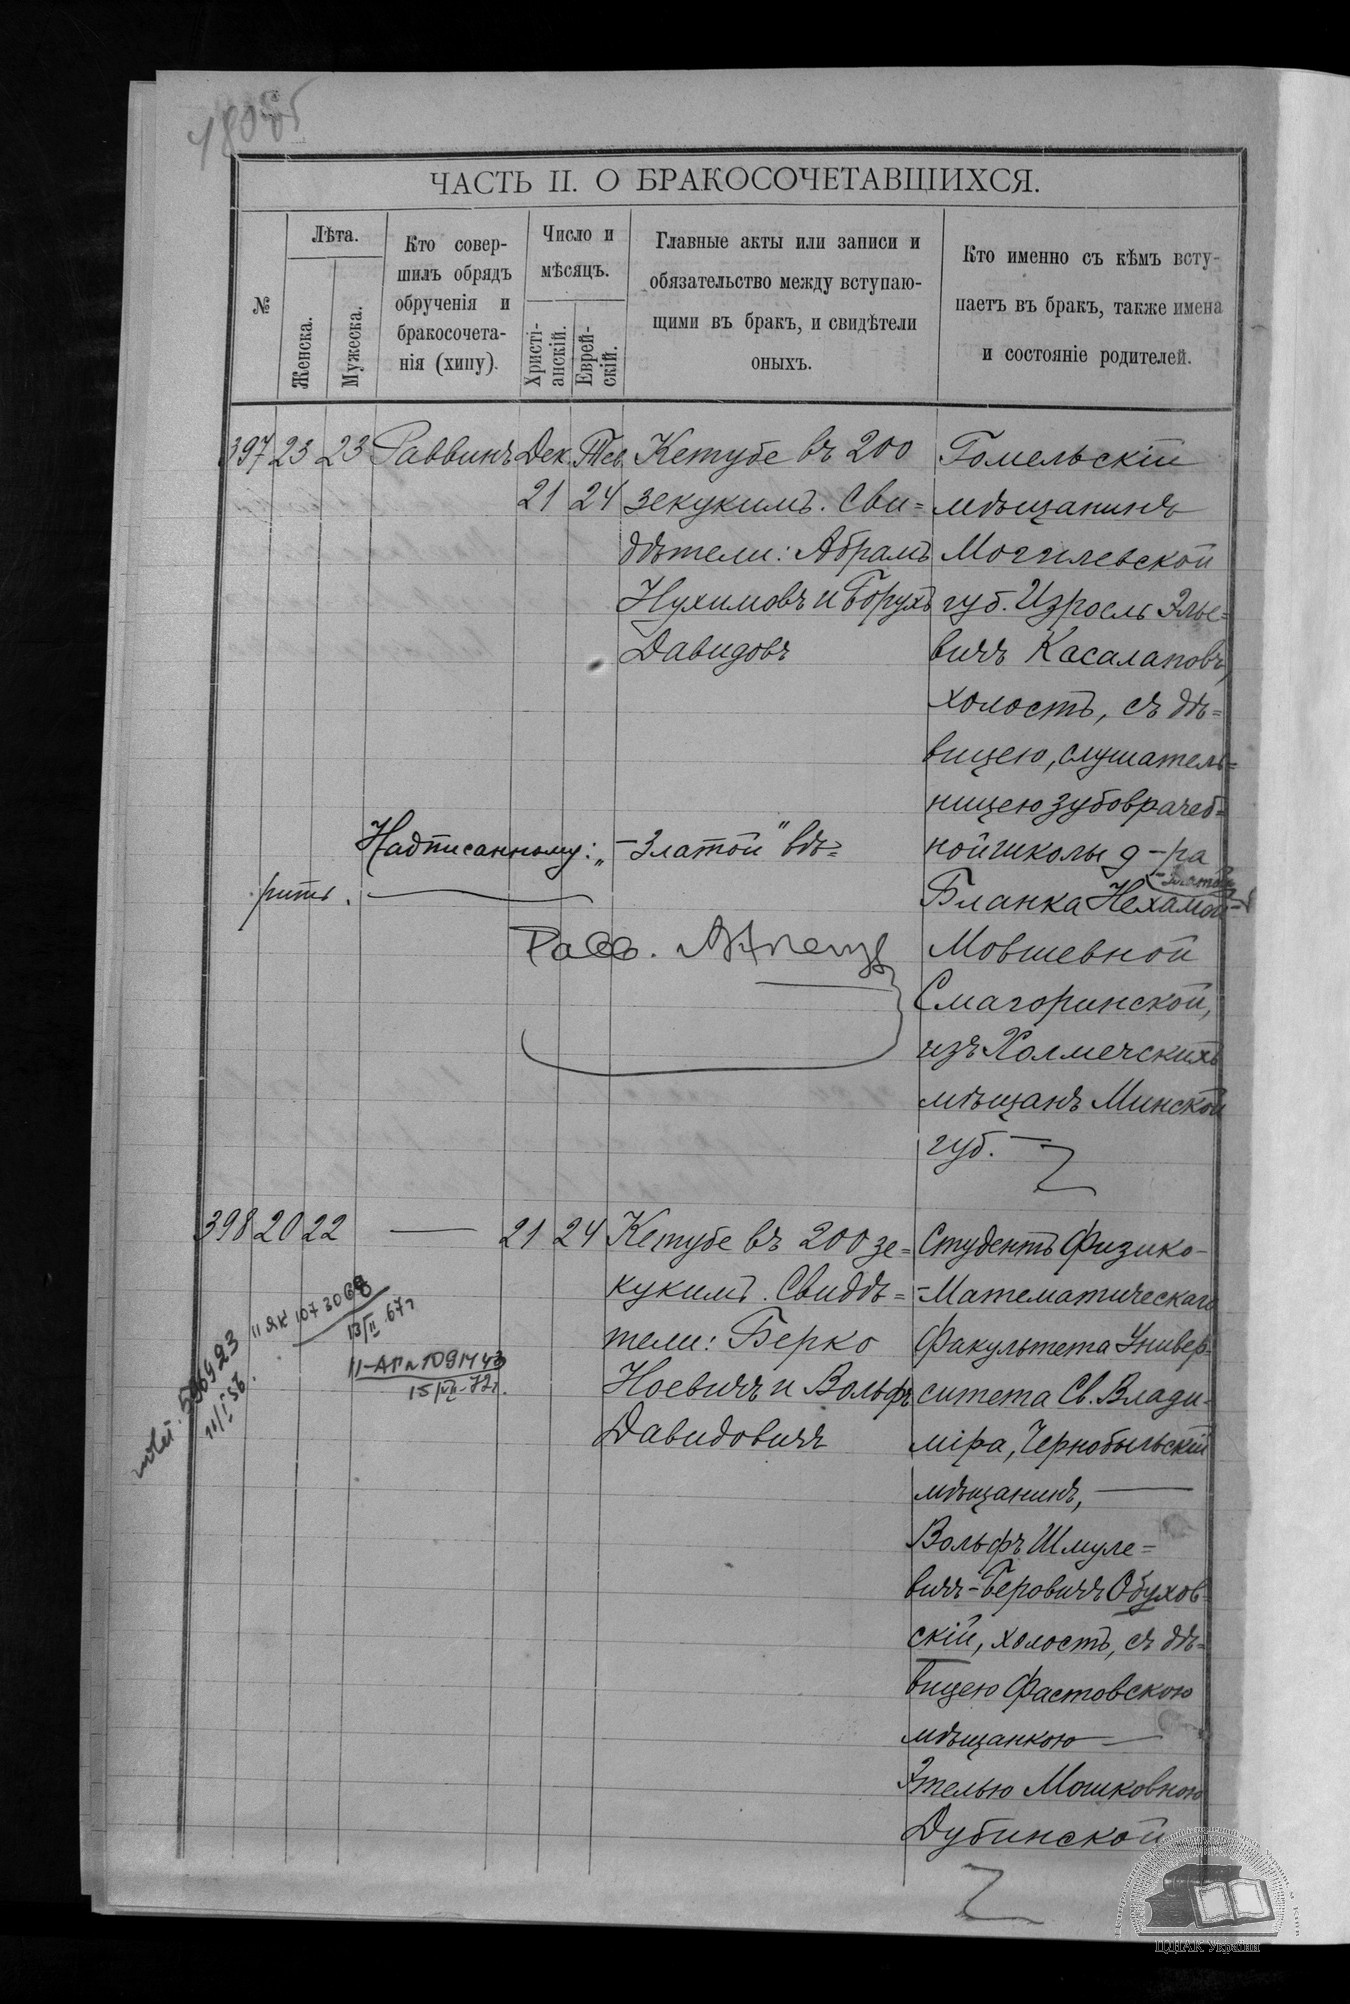 180 об
ЧАСТЬ II. О БРАКОСОЧЕТАВШИХСЯ.
№
Лѣта.
Женска.
Мужеска.
Кто совер-
шилъ обрядъ
обрученія и
бракосочета-
нія (хипу).
Число и
мѣсяцъ.
Христі-
анскій.
Еврей-
скій.
Главные акты или записи и
обязательство между вступаю-
щими въ бракъ, и свидѣтели
оныхъ.
Кто именно съ кѣмъ всту-
паетъ въ бракъ, также имена
и состояніе родителей.
397 23 23 Раввинъ Дек. Тев.
21 24
Кетубе въ 200
зекукимъ. Сви=
дѣтели: Абрамъ
Нухимовъ и Борухъ
Давидовъ
Гомельскій
мѣщанинъ
Могилевской
губ. Изроель Элье=
вичъ Касалаповъ,
холостъ, съ дѣ=
вицею, слушатель=
ницею зубоврачеб=
ной школы д-ра
-Златой
Бланка Нехамой-
Мовшевной
Смагоринской,
изъ Холмечскихъ
мѣщанъ Минской
губ. —
Надписанному: „-Златой" вѣ=
рить.
Равв.
398 20 22 — 21 24
Кетубе въ 200 зе=
кукимъ. Свидѣ=
тели: Берко
Ноевичъ и Вольфъ
Давидовичъ
Студентъ Физико-
-Математическаго
Факультета Универ-
ситета Св. Влади-
міра, Чернобыльскій
мѣщанинъ, —
Вольфъ Шмуле=
вичъ-Беровичъ Обухов-
скій, холостъ, съ дѣ=
вицею Фастовскою
мѣщанкою —
Этелью Мошковною
Дубинской
II ЯК 107 3068
13/II 67г
II-АП № 1091443
15/VII-72г.
596923
111/I 56.
ЦДІАК України